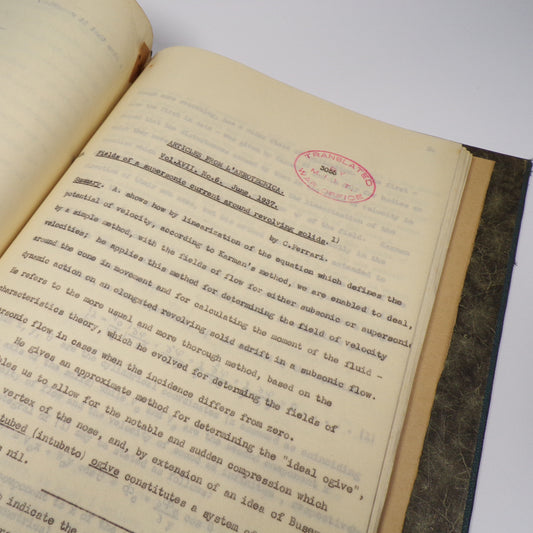 ARTICLES FROM L'AEROTECNICA.
Vol.XVII. No.6. June, 1937.
Fields of a supersonic current around revolving solids. 1)
by C.Ferrari.
TRANSLATED
3056
WAR OFFICE
Summary. A. shows how by linearization of the equation which defines the
potential of velocity, according to Karman's method, we are enabled to deal,
by a simple method, with the fields of flow for either subsonic or supersonic
velocities; he applies this method for determining the field of velocity
around the cone in movement and for calculating the moment of the fluid -
dynamic action on an elongated revolving solid adrift in a subsonic flow.
He refers to the more usual and more thorough method, based on the
characteristics theory, which he evolved for determing the fields of
ersonic flow in cases when the incidence differs from zero.
He gives an approximate method for determining the "ideal ogive",
bles us to allow for the notable and sudden compression which
vertex of the nose, and, by extension of an idea of Buse
tubed (intubato) ogive constitutes a system of
s nil.
e indicate the